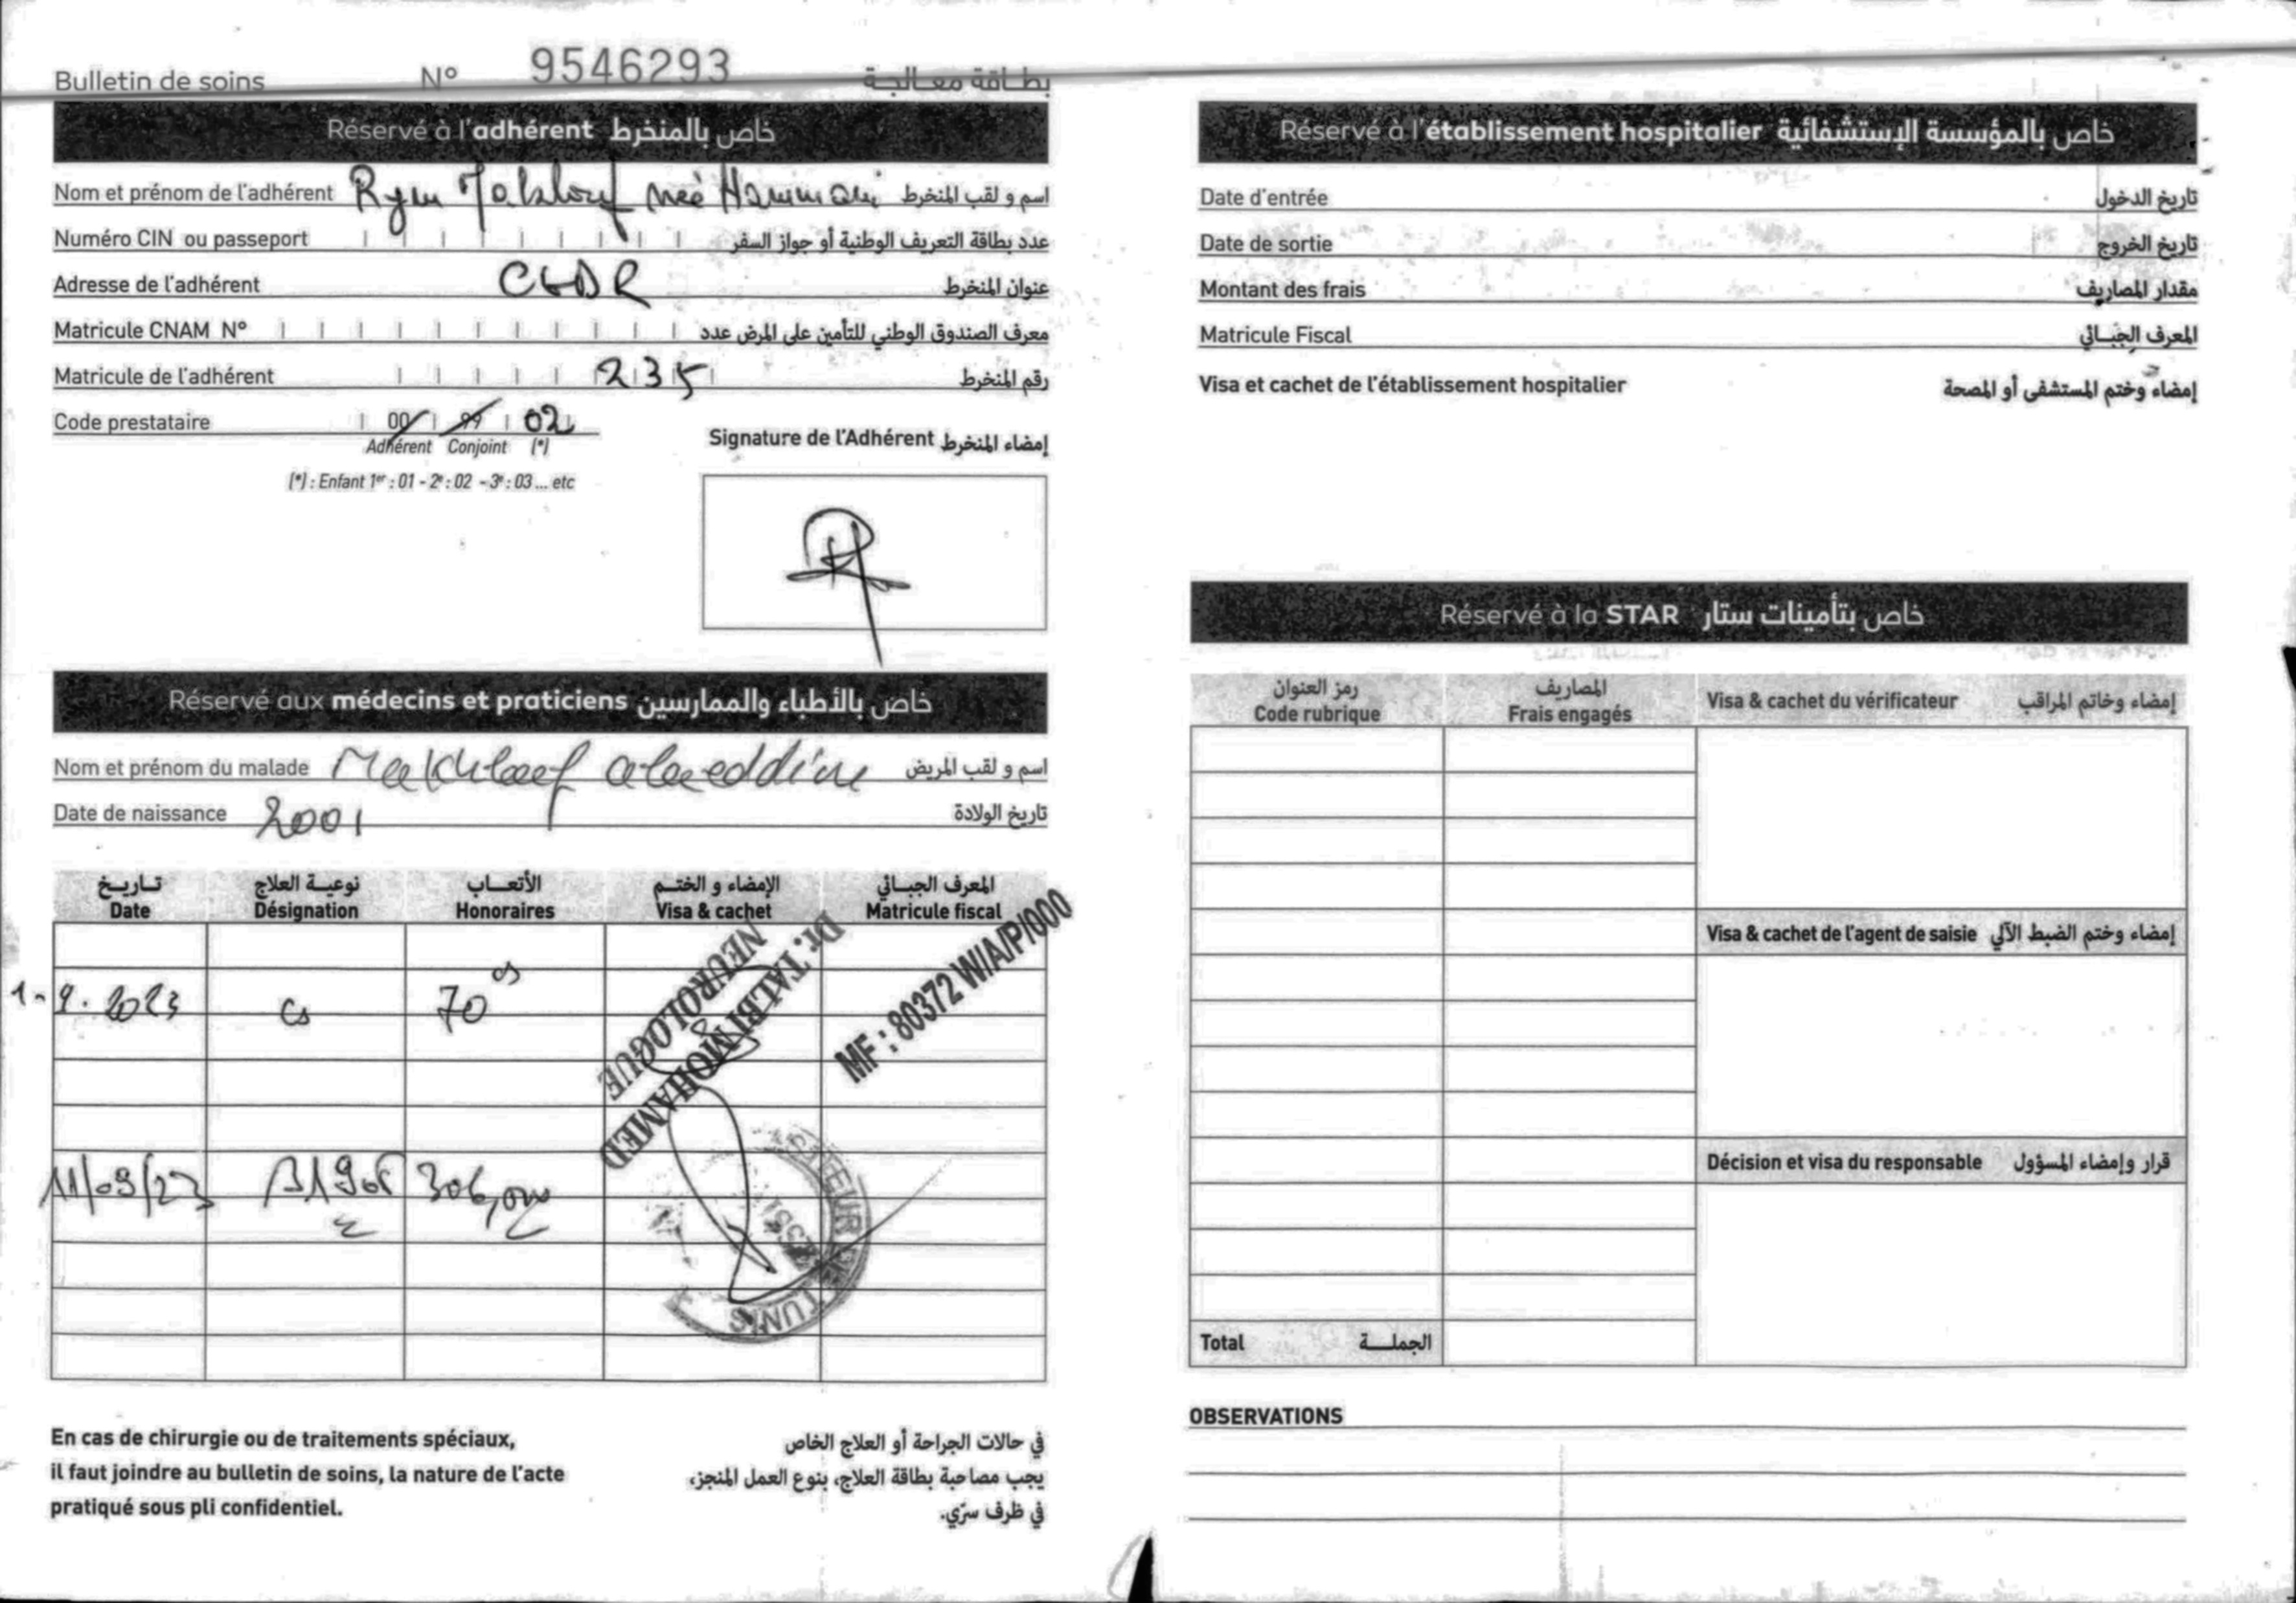 Bulletin de soins N° 9546293 بطاقة معالجة
Réservé à l'adhérent خاص بالمنخرط
Nom et prénom de l'adhérent Rym Makhlouf née Hammami اسم و لقب المنخرط
Numéro CIN ou passeport عدد بطاقة التعريف الوطنية أو جواز السفر
Adresse de l'adhérent عنوان المنخرط
Matricule CNAM N° معرف الصندوق الوطني للتأمين على المرض عدد
Matricule de l'adhérent 235 رقم المنخرط
Code prestataire 00 99 02
Adhérent Conjoint (*)
(*) : Enfant 1er : 01 - 2e : 02 - 3e : 03 ... etc
Signature de l'Adhérent إمضاء المنخرط
Réservé aux médecins et praticiens خاص بالأطباء والممارسين
Nom et prénom du malade Makhlouf alaeddine اسم و لقب المريض
Date de naissance 2001 تاريخ الولادة
تاريخ نوعية العلاج الأتعاب الإمضاء و الختم المعرف الجبائي
Date Désignation Honoraires Visa & cachet Matricule fiscal
1-9.2023 Cs 70
Dr. TALBI MOHAMED
NEUROLOGUE
MF : 80372 W/A/P/000
11/09/23 306,000
TUNIS
En cas de chirurgie ou de traitements spéciaux,
il faut joindre au bulletin de soins, la nature de l'acte
pratiqué sous pli confidentiel.
في حالات الجراحة أو العلاج الخاص
يجب مصاحبة بطاقة العلاج، بنوع العمل المنجز،
في ظرف سرّي.
Réservé à l'établissement hospitalier خاص بالمؤسسة الإستشفائية
Date d'entrée تاريخ الدخول
Date de sortie تاريخ الخروج
Montant des frais مقدار المصاريف
Matricule Fiscal المعرف الجبائي
Visa et cachet de l'établissement hospitalier إمضاء وختم المستشفى أو المصحة
Réservé à la STAR خاص بتأمينات ستار
رمز العنوان المصاريف
Code rubrique Frais engagés
Visa & cachet du vérificateur إمضاء وخاتم المراقب
Visa & cachet de l'agent de saisie إمضاء وختم الضبط الآلي
Décision et visa du responsable قرار وإمضاء المسؤول
Total الجملة
OBSERVATIONS